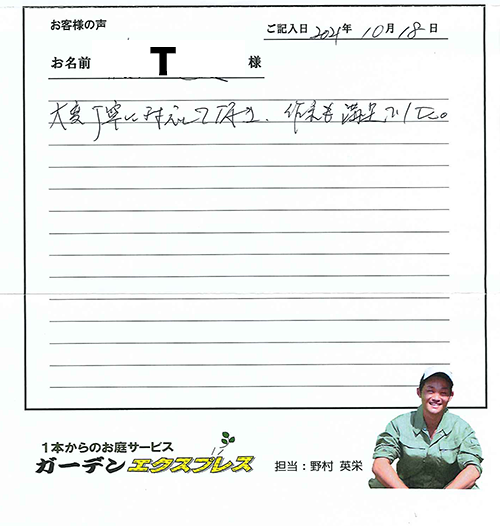 お客様の声
ご記入日 2021年 10月 18日
お名前 T 様
大変丁寧に対応して頂き、作業も満足でした。
1本からのお庭サービス
ガーデンエクスプレス
担当:野村 英栄